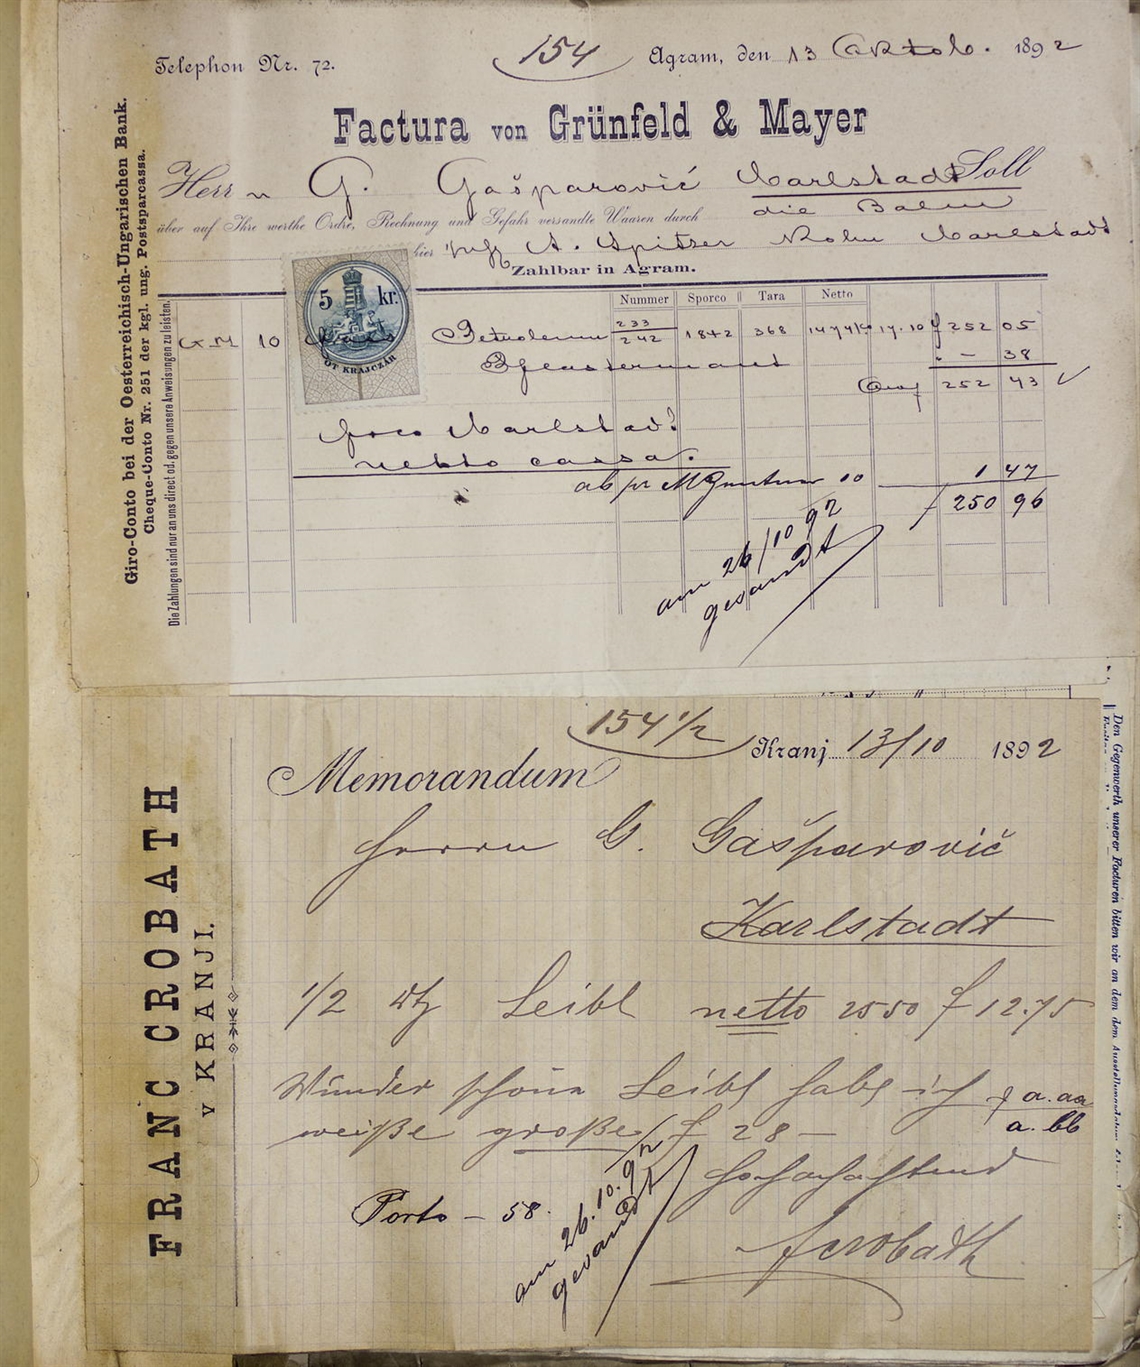 Telephon Nr. 72.
154
Agram, den 13 Oktob. 1892
Factura von Grünfeld & Mayer
Herrn G. Gašparović Carlstadt Soll
über auf Ihre werthe Ordre, Rechnung und Gefahr versandte Waaren durch die Bahn
hier A. Spitzer Carlstadt
Zahlbar in Agram.
Giro-Conto bei der Oesterreichisch-Ungarischen Bank.
Cheque-Conto Nr. 251 der kgl. ung. Postsparcassa.
Die Zahlungen sind nur an uns direct od. gegen unsere Anweisungen zu leisten.
Nummer Sporco Tara Netto
5 kr.
ÖT KRAJCZÁR
G.M. 10 Petroleum 233 242 1842 368 17.10 f 252 05
" — 38
252 43
franco Carlstadt
netto cassa.
ab pr 1 47
f 250 96
am 26/10 92
gesandt
154 1/2
Kranj 13/10 1892
Memorandum
FRANC CROBATH
V KRANJI.
Herrn G. Gašparovič
Karlstadt
1/2 Leibl netto 25 50 f 12.75
Wunder schöne Leibl habe ich f a.aa
weiße große f 28 — a.bb
Hochachtend
Porto — 58.
FCrobath
am 26.10.92
gesandt
Den Gegenwerth unserer Facturen bitten wir an dem dem